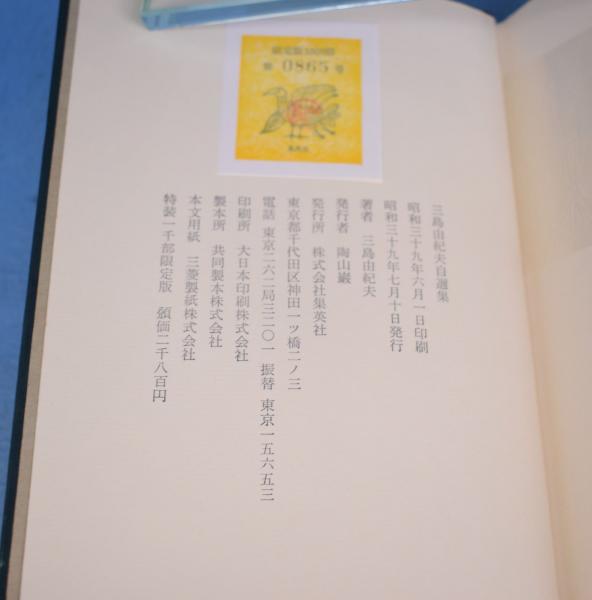 限定版1000部
第 0865 号
集英社
三島由紀夫自選集
昭和三十九年六月一日印刷
昭和三十九年七月十日発行
著者 三島由紀夫
発行者 陶山巌
発行所 株式会社集英社
東京都千代田区神田一ツ橋二ノ三
電話 東京二六二局三二〇一 振替 東京一五六五三
印刷所 大日本印刷株式会社
製本所 共同製本株式会社
本文用紙 三菱製紙株式会社
特装一千部限定版 頒価二千八百円